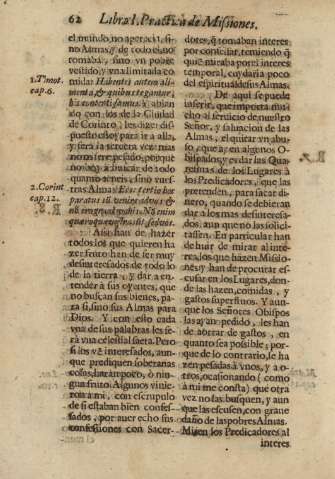 62 Libro I. Practica de Missiones.
el mundo, no apetecia, si-
no Almas, y de todo el no
tomaba, sino vn pobre
vestido, y vna limitada co-
mida: Habentes autem ali-
menta, & quibus tegamur,
his contenti sumus. Y
1. Timot.
cap. 6.
do con los de la Ciudad
de Corinto, les dize: dis-
puesto estoy para ir a allá,
y será la tercera vez: mas
no os seré pesado, porque
no voy à buscar de todo
quanto teneis, sino vues-
tras Almas: Ecce tertio hoc
paratus sum venire ad vos, &
non ero gravis vobis. Non enim
quæro quæ vestra sunt, sed vos.
2. Corint
cap. 12.
Assi han de hazer
todos los que quieren ha-
zer fruto: han de ser muy
desinteressados de todo lo
de la tierra, y dar a en-
tender à sus oyentes, que
no buscan sus bienes, pa-
ra sí, sino sus Almas para
Dios. Y con esto cada
vna de sus palabras les se-
rà vna celestial saeta. Pero
si los vè interesados, aun-
que prediquen soberanas
cosas, harà poco, ò nin-
gun fruto. Algunos vinie-
ron a mi, con escrupulo
de si estaban bien confes-
sados, por auer echo sus
confessiones con Sacer-
dotes, que tomaban interes
por confessar, temiendo que
que miraba por el interes
temporal, cuydaria poco
del espiritual de sus Almas.
De aqui se puede
inferir, que importa mu-
cho al servicio de nuestro
Señor, y saluacion de las
Almas, el quitar vn abu-
so, que ay en algunos O-
bispados, y es dar las Qua-
resmas de los Lugares à
los Predicadores, que las
pretenden, para sacar di-
nero, quando se debieran
dar a los mas desinteresa-
dos, aun que no las solici-
tassen. En particular han
de huir de mirar al inte-
res, los que hazen Missio-
nes: y han de procurar es-
cusar en los Lugares, don-
de las hazen, comidas, y
gastos superfluos. Y aun-
que los Señores Obispos
las ayan pedido, les han
de ahorrar de gastos, en
quanto sea possible; por-
que de lo contrario, se ha
zen pesadas à vnos, y a o-
tros, ocasionando (como
à mi me consta) que otra
vez no las busquen, y aun
que las escusen, con graue
daño de las pobres Almas.
Miren los Predicadores al
interes